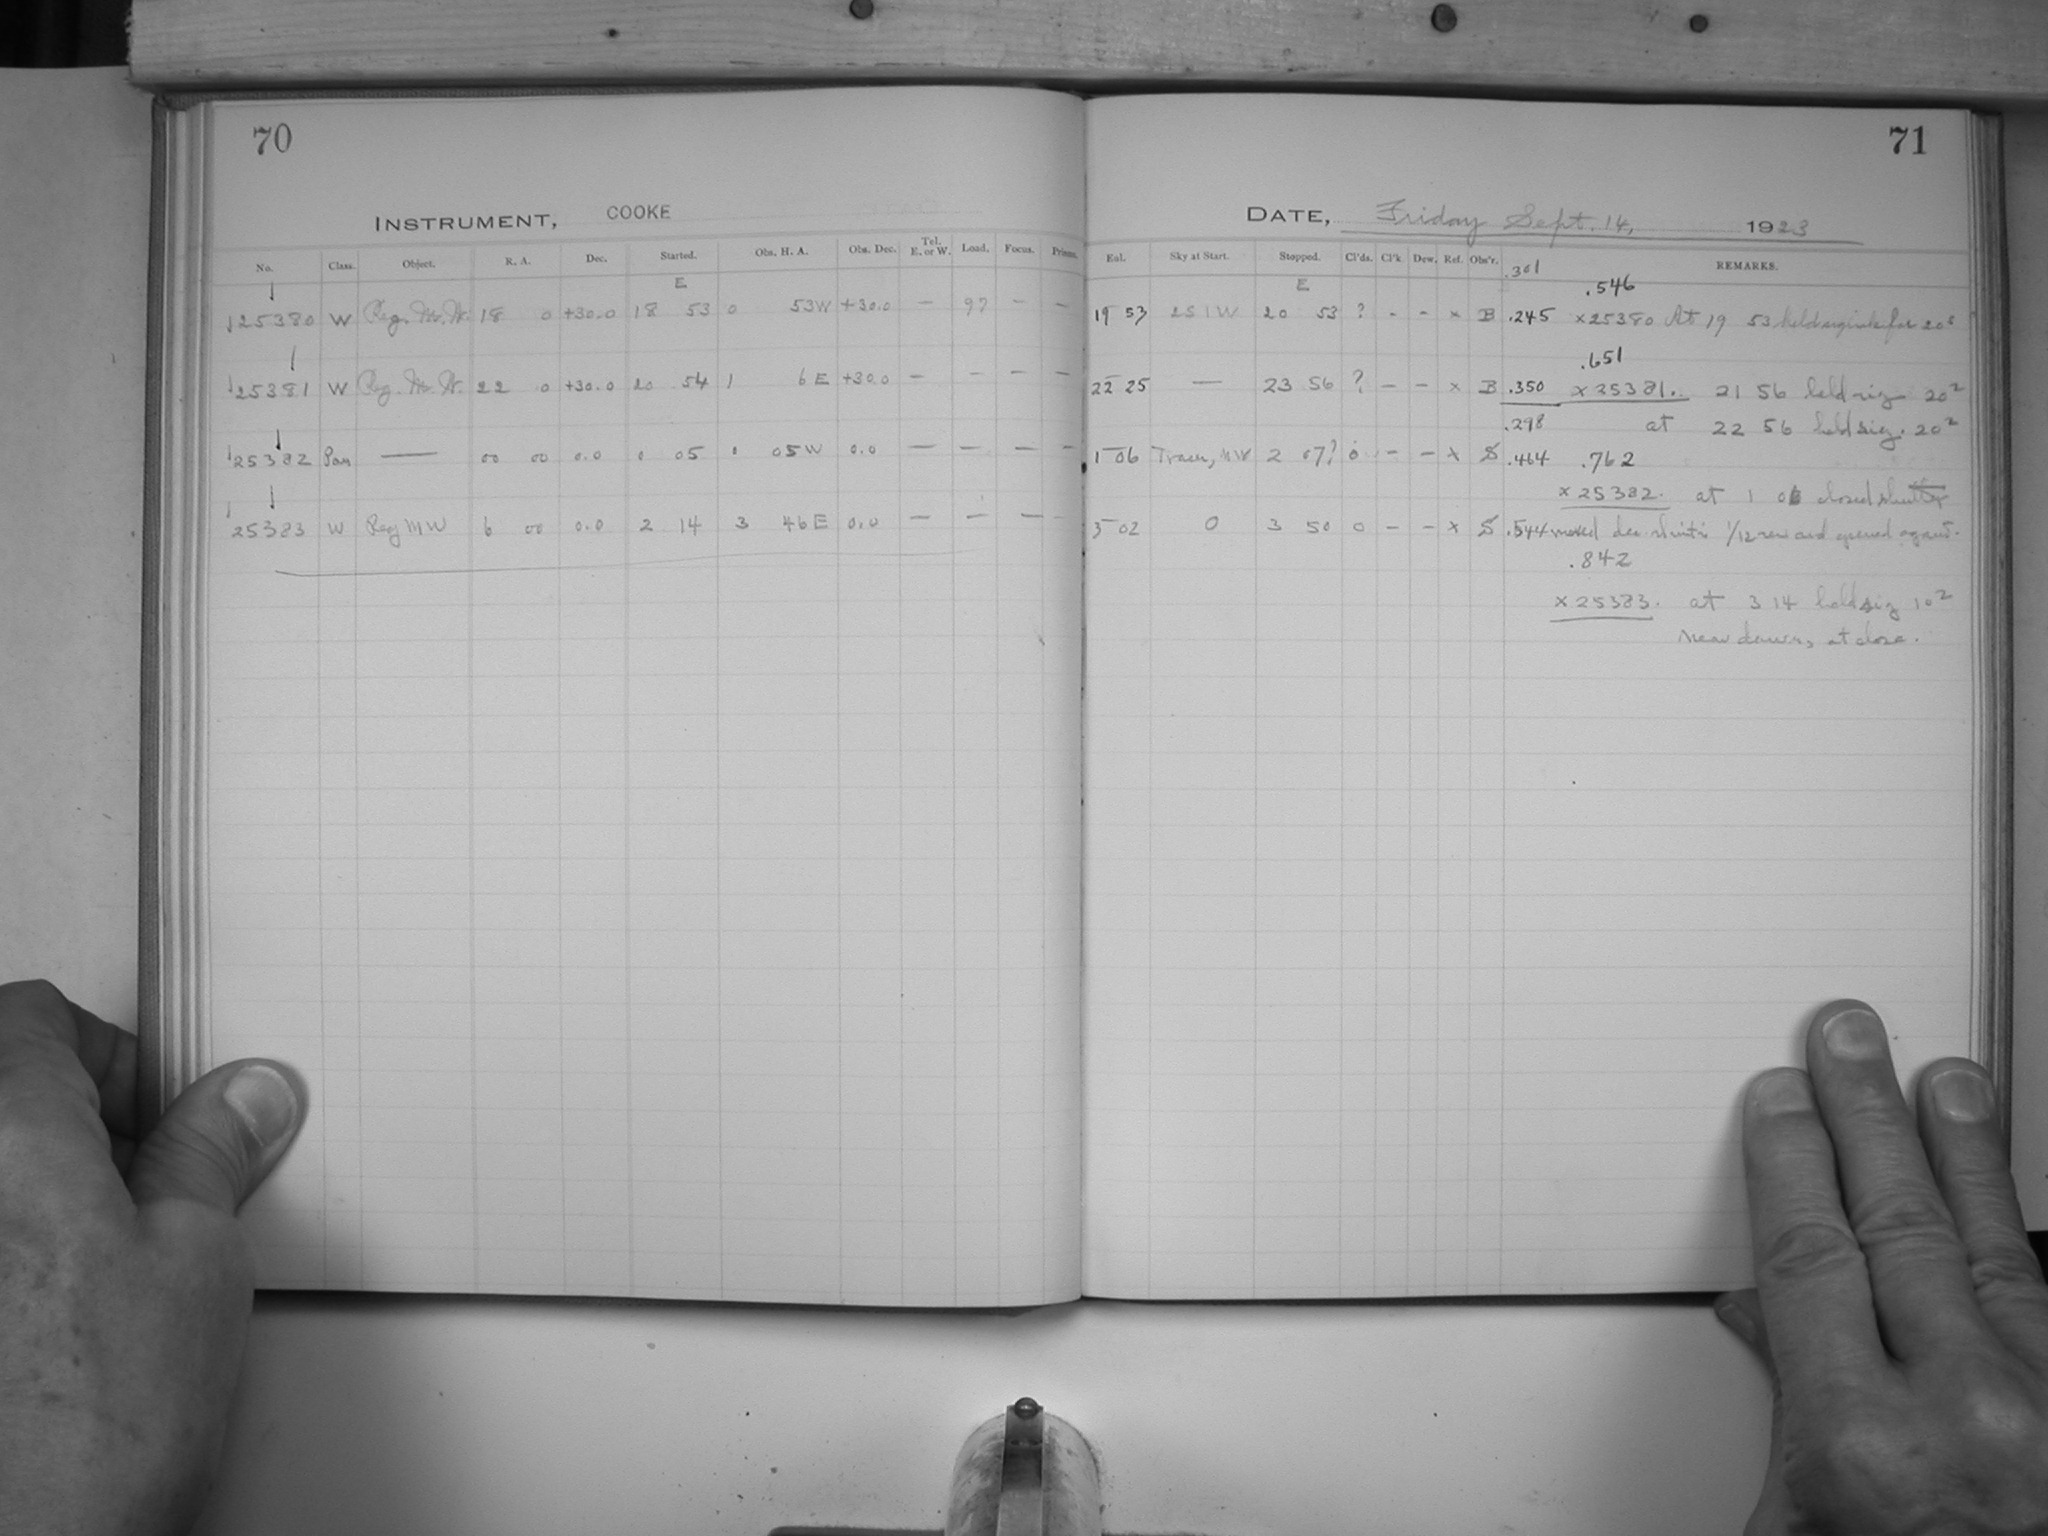 70
INSTRUMENT, COOKE
No. Class. Object. R. A. Dec. Started. Obs. H. A. Obs. Dec. Tel. E. or W. Load. Focus. Prisms.
E
25380 W Reg. M. W. 18 0 +30.0 18 53 0 53W +30.0 — 97 — —
25381 W Reg. M. W. 22 0 +30.0 20 54 1 6 E +30.0 — — — —
25382 Pan — 00 00 0.0 0 05 0 05W 0.0 — — — —
25383 W Reg M W 6 00 0.0 2 14 3 46 E 0.0 — — — —
71
DATE, Friday Sept. 14, 1923
Eol. Sky at Start. Stopped. Cl'ds. Cl'k Dew. Ref. Obs'r. .301 REMARKS.
E .546
19 53 2S1W 20 53 ? - - x B .245 x25380 At 19 53 held for 20s
.651
22 25 — 23 56 ? - - x B .350 x 25381. 21 56 held sig 20
.298 at 22 56 held sig. 20
1 06 2 07? 0 - - x S .464 .762
x 25382. at 1 closed shutter
3 02 0 3 50 0 - - x S .544 moved dec. 1/12 rev and opened again.
.842
x 25383. at 3 14 held sig 10
Near dawn, at close.